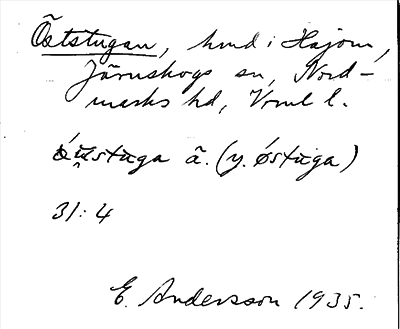 Öststugan, hmd i Hajom,
Järnskogs sn, Nord-
marks hd, Vrml l.
ä. (y. østuga)
31:4
E. Andersson 1935.